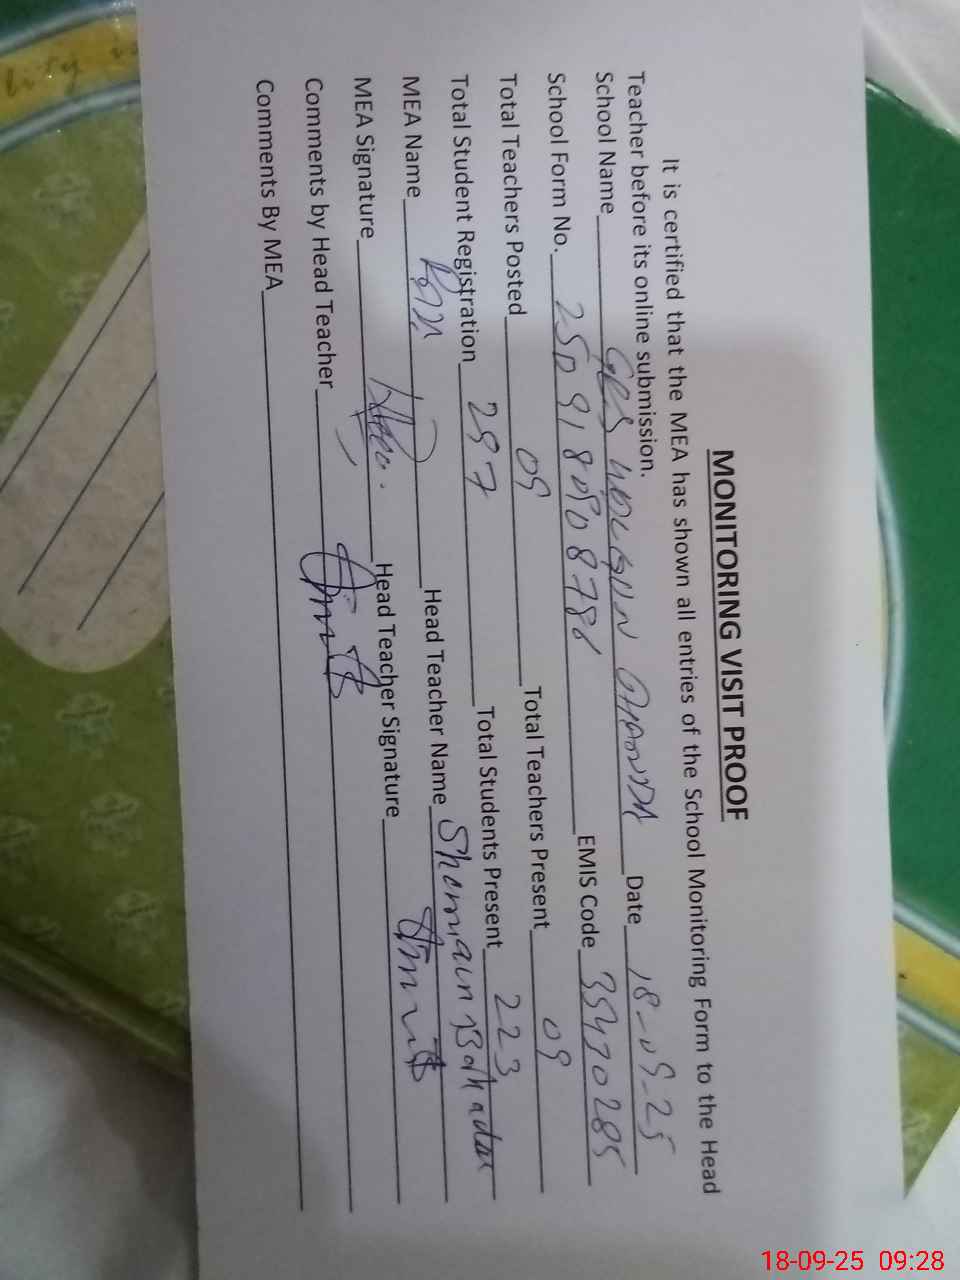 MONITORING VISIT PROOF
It is certified that the MEA has shown all entries of the School Monitoring Form to the Head
Teacher before its online submission.
School Name GPS Date 18-09-25
School Form No. EMIS Code 35470285
Total Teachers Posted 09 Total Teachers Present 09
Total Student Registration 297 Total Students Present 223
MEA Name Head Teacher Name
MEA Signature Head Teacher Signature
Comments by Head Teacher
Comments By MEA
18-09-25 09:28